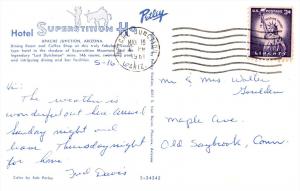 Hotel Superstition Ho
APACHE JUNCTION, ARIZONA.
Dining Room and Coffee Shop at this truly fabulous
type hotel in the shadow of Superstition Mountain and the
legendary "Lost Dutchman" mine. 146 rooms, swimming pool
and intriguing dining and bar facilities.
Petley
5-16
Hi
The weather is
wonderful out here arrived
Sunday night and
leave Thursday night
for home
Fred Davis
Color by Bob Petley
S-34542
MAY 16
PM
1961
ARIZ.
LIBERTY
3¢
Mr & Mrs Walter
Maple Ave
Old Saybrook, Conn.